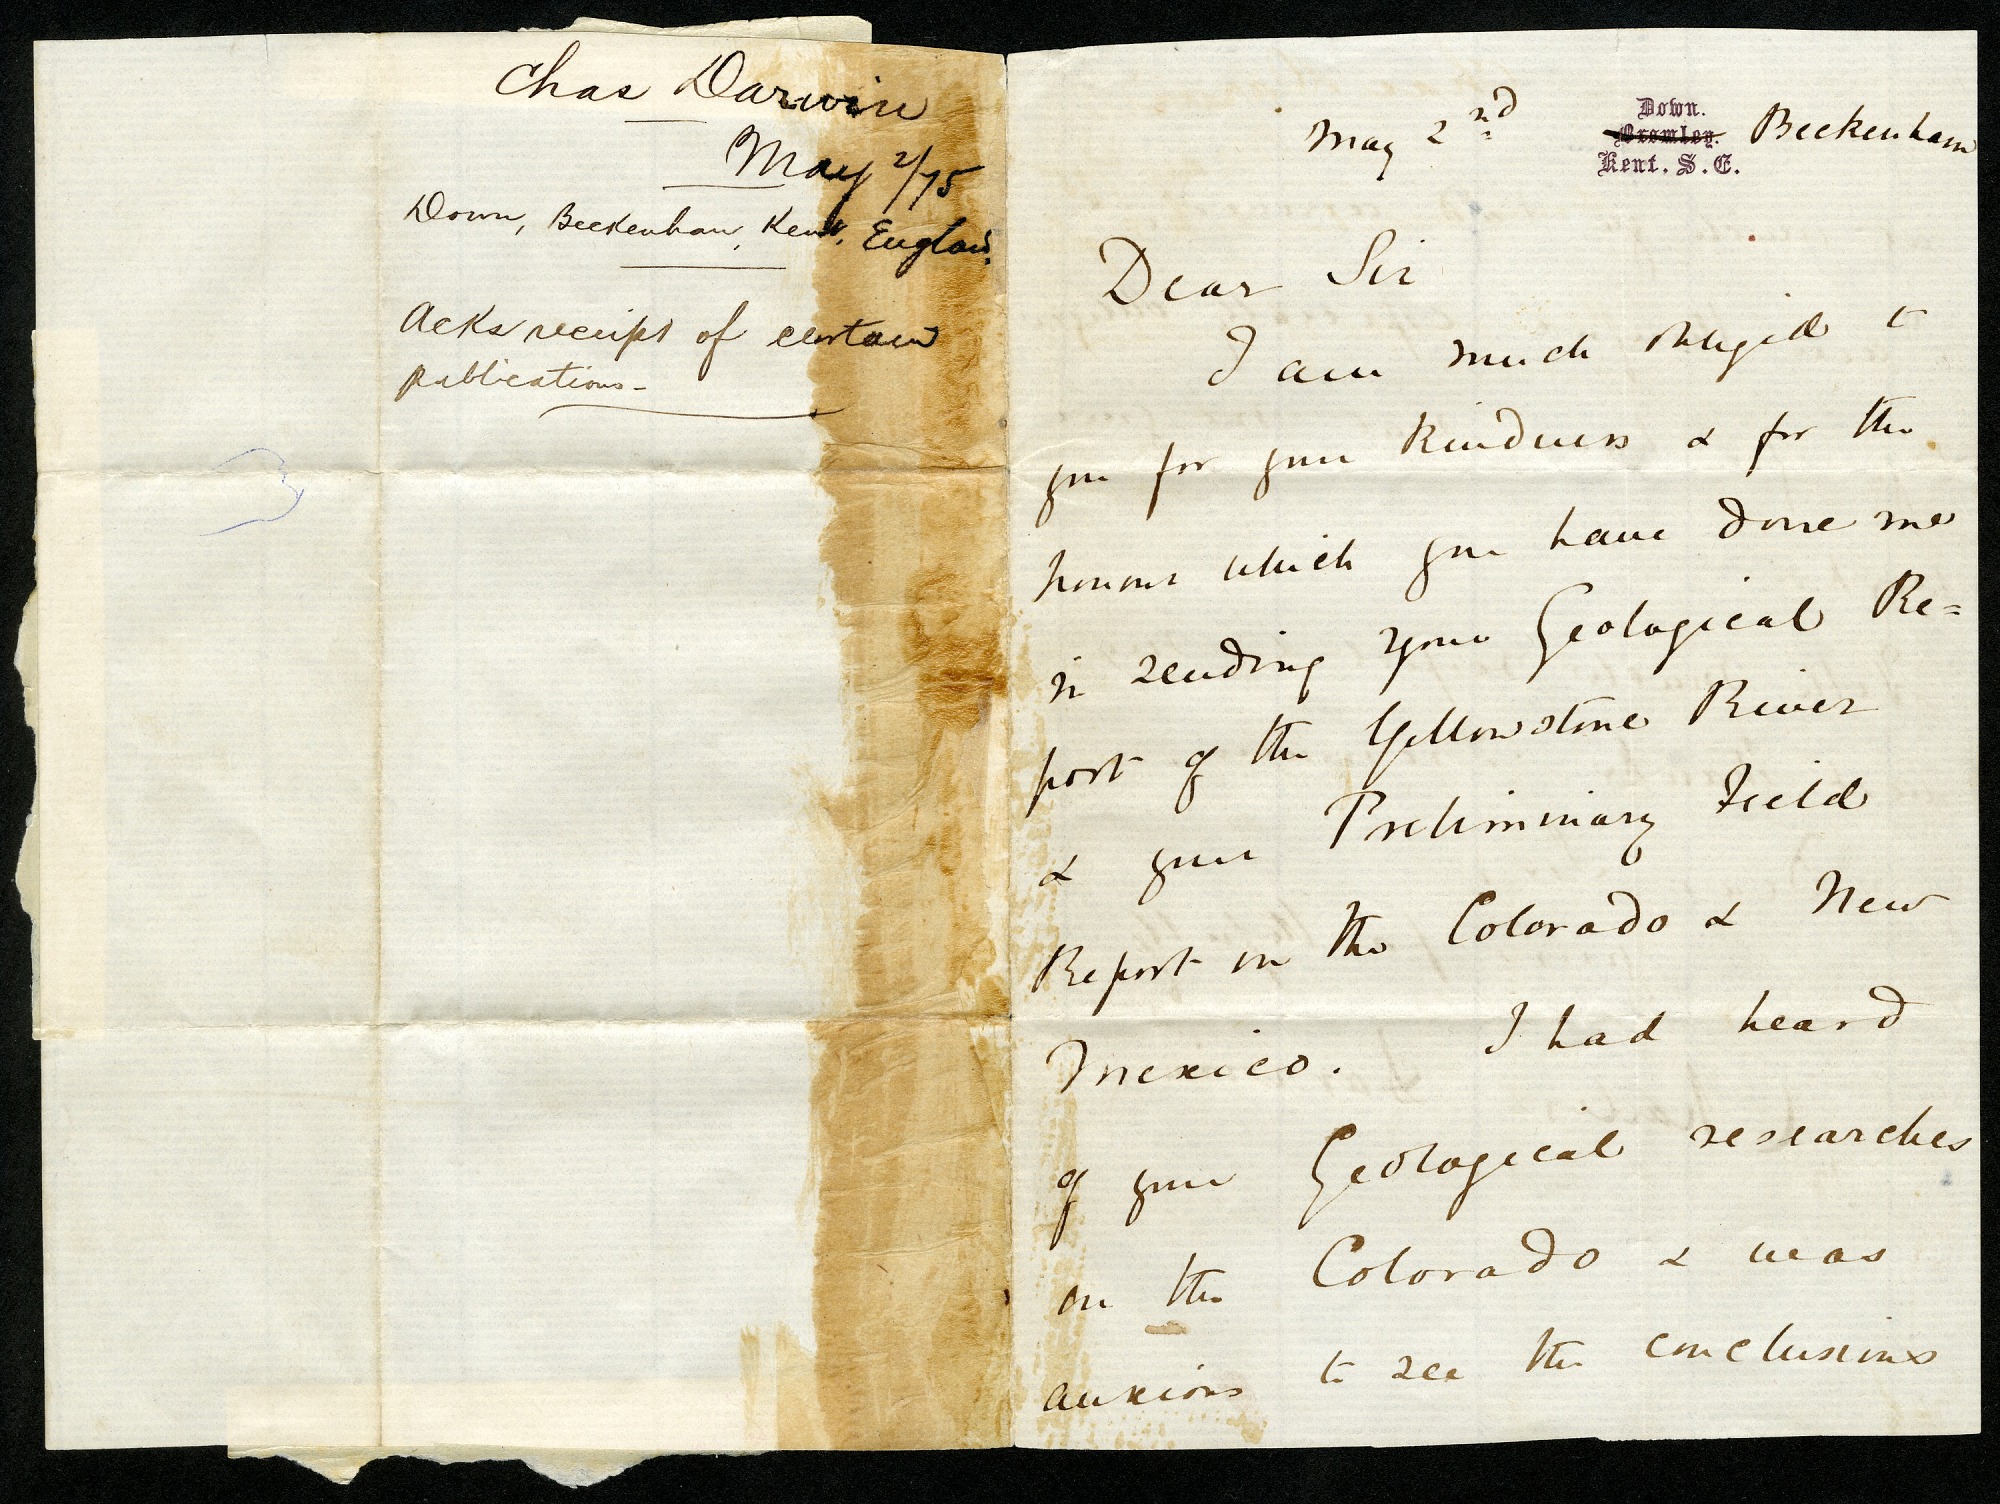 Chas Darwin
May 2/75
Down, Beckenham, Kent, England.
Acks receipt of certain
publications -
May 2nd
Down.
Bromley.
Kent. S. E.
Beckenham
Dear Sir
I am much obliged to
you for your kindness & for the
honour which you have done me
in sending your Geological Re=
port of the Yellowstone River
& your Preliminary Field
Report on the Colorado & New
Mexico. I had heard
of your Geological researches
on the Colorado & was
anxious to see the conclusions